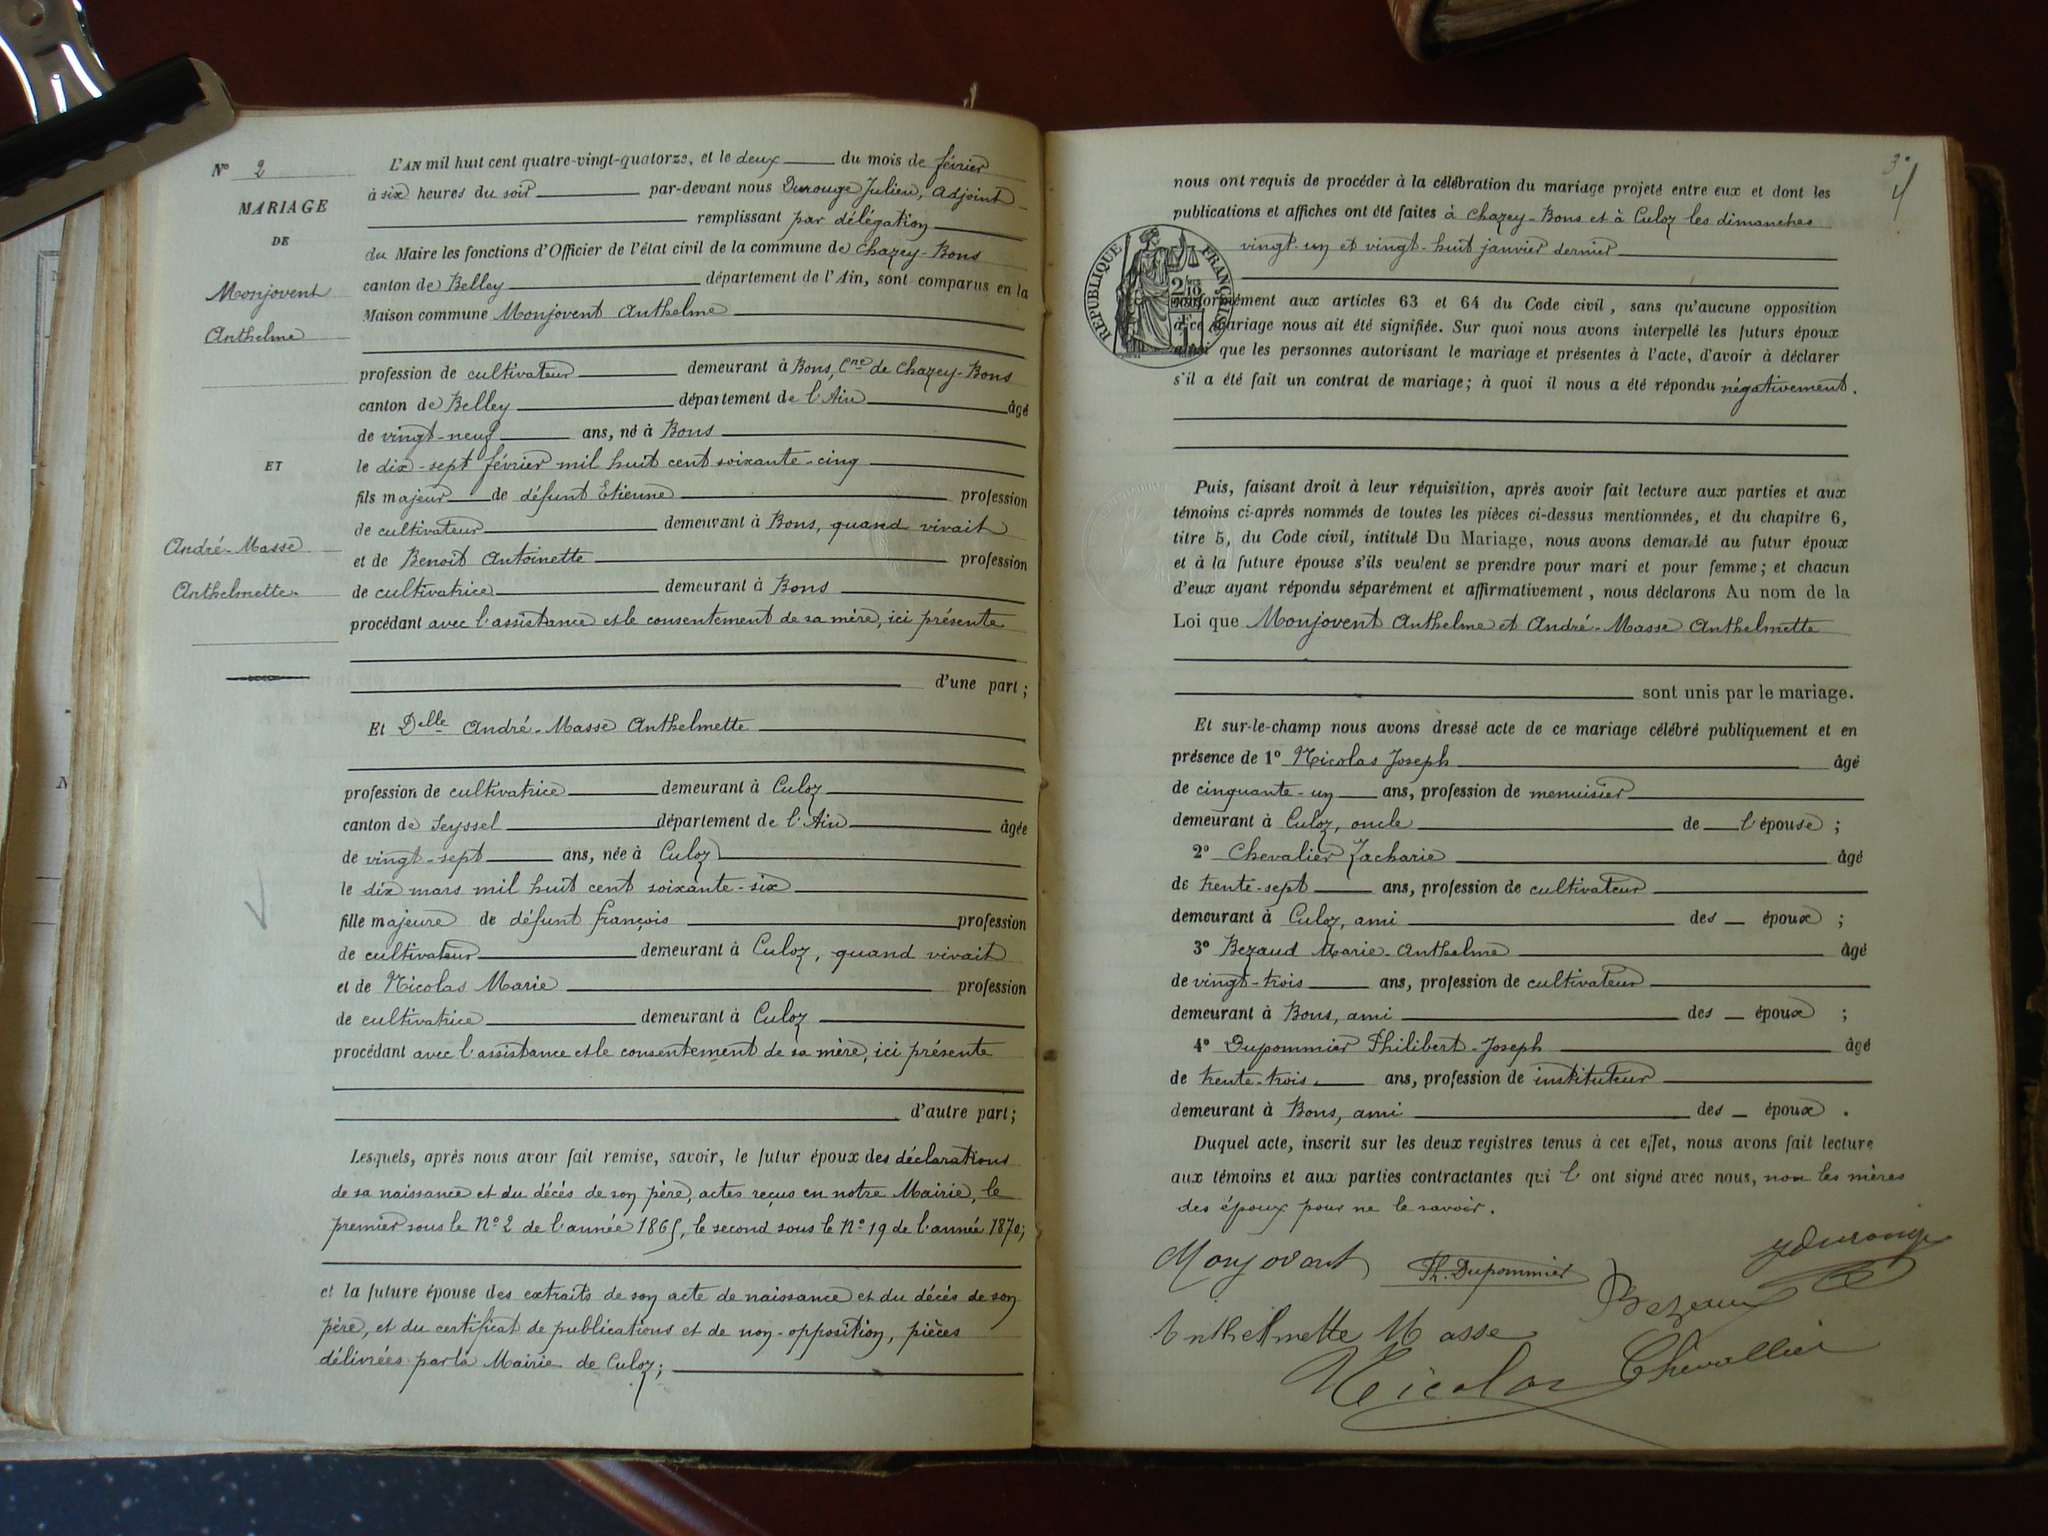 N° 2
MARIAGE
DE
Monjovent
Anthelme
ET
André-Masse
Anthelmette
L'AN mil huit cent quatre-vingt-quatorze, et le deux du mois de février
à six heures du soir par-devant nous Durouge Julien, Adjoint
remplissant par délégation
du Maire les fonctions d'Officier de l'état civil de la commune de Chazey-Bons
canton de Belley département de l'Ain, sont comparus en la
Maison commune Monjovent Anthelme
profession de cultivateur demeurant à Bons, Cne de Chazey-Bons
canton de Belley département de l'Ain âgé
de vingt-neuf ans, né à Bons
le dix-sept février mil huit cent soixante-cinq
fils majeur de défunt Etienne profession
de cultivateur demeurant à Bons, quand vivait
et de Benoit Antoinette profession
de cultivatrice demeurant à Bons
procédant avec l'assistance et le consentement de sa mère, ici présente
d'une part;
Et Delle André-Masse Anthelmette
profession de cultivatrice demeurant à Culoz
canton de Seyssel département de l'Ain âgée
de vingt-sept ans, née à Culoz
le dix mars mil huit cent soixante-six
fille majeure de défunt François profession
de cultivateur demeurant à Culoz, quand vivait
et de Nicolas Marie profession
de cultivatrice demeurant à Culoz
procédant avec l'assistance et le consentement de sa mère, ici présente
d'autre part;
Lesquels, après nous avoir fait remise, savoir, le futur époux des déclarations
de sa naissance et du décès de son père, actes reçus en notre Mairie, le
premier sous le N° 2 de l'année 1865, le second sous le N° 19 de l'année 1870;
et la future épouse des extraits de son acte de naissance et du décès de son
père, et du certificat de publications et de non-opposition, pièces
délivrées par la Mairie de Culoz;
3°
nous ont requis de procéder à la célébration du mariage projeté entre eux et dont les
publications et affiches ont été faites à Chazey-Bons et à Culoz les dimanches
vingt-un et vingt-huit janvier dernier
RÉPUBLIQUE FRANÇAISE
conformément aux articles 63 et 64 du Code civil, sans qu'aucune opposition
à ce mariage nous ait été signifiée. Sur quoi nous avons interpellé les futurs époux
ainsi que les personnes autorisant le mariage et présentes à l'acte, d'avoir à déclarer
s'il a été fait un contrat de mariage; à quoi il nous a été répondu négativement.
Puis, faisant droit à leur réquisition, après avoir fait lecture aux parties et aux
témoins ci-après nommés de toutes les pièces ci-dessus mentionnées, et du chapitre 6,
titre 5, du Code civil, intitulé Du Mariage, nous avons demandé au futur époux
et à la future épouse s'ils veulent se prendre pour mari et pour femme; et chacun
d'eux ayant répondu séparément et affirmativement, nous déclarons Au nom de la
Loi que Monjovent Anthelme et André-Masse Anthelmette
sont unis par le mariage.
Et sur-le-champ nous avons dressé acte de ce mariage célébré publiquement et en
présence de 1° Nicolas Joseph âgé
de cinquante-un ans, profession de menuisier
demeurant à Culoz, oncle de l'épouse;
2° Chevalier Zacharie âgé
de trente-sept ans, profession de cultivateur
demeurant à Culoz, ami des époux;
3° Bezaud Marie-Anthelme âgé
de vingt-trois ans, profession de cultivateur
demeurant à Bons, ami des époux;
4° Dupommier Philibert-Joseph âgé
de trente-trois ans, profession de instituteur
demeurant à Bons, ami des époux.
Duquel acte, inscrit sur les deux registres tenus à cet effet, nous avons fait lecture
aux témoins et aux parties contractantes qui l'ont signé avec nous, non les mères
des époux pour ne le savoir.
Monjovent Ph. Dupommier JDurouge
Anthelmette Masse Bezaud
Nicolas Chevallier